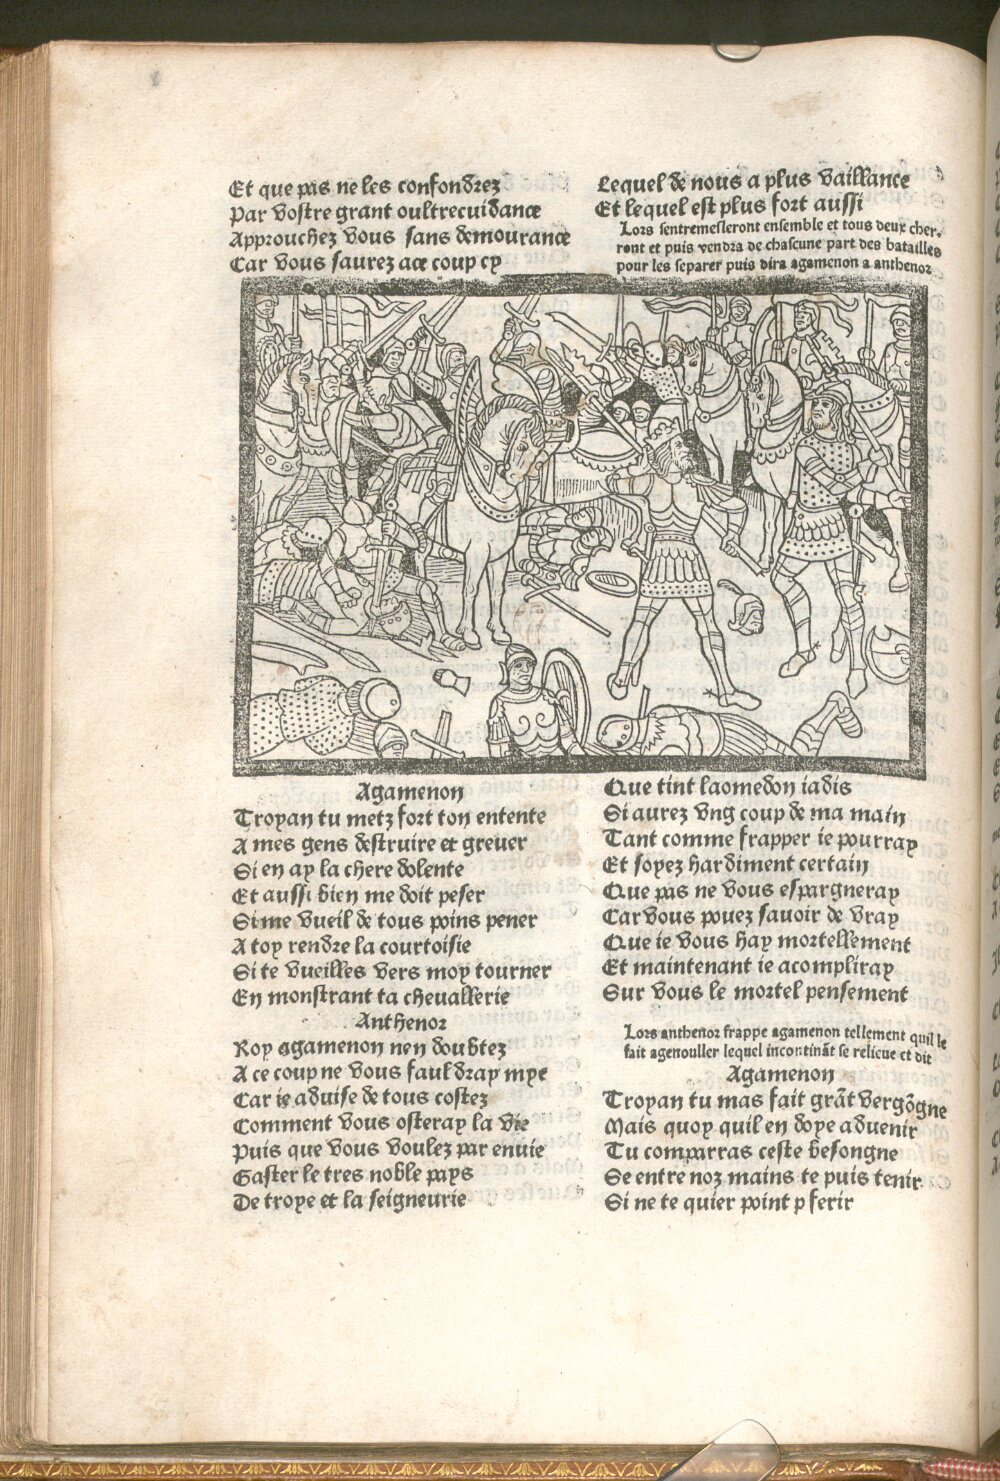 Et que pas ne les confondrez
Par vostre grant oultrecuidance
Approuchez vous sans demourance
Car vous saurez a ce coup cy
Lequel de nous a plus vaillance
Et lequel est plus fort aussi
Lors sentremesleront ensemble et tous deux cher-
ront et puis vendra de chascune part des batailles
pour les separer puis dira agamenon a anthenor
Agamenon
Troyan tu metz fort ton entente
A mes gens destruire et grever
Si en ay la chere dolente
Et aussi bien me doit peser
Si me vueil de tous poins pener
A toy rendre la courtoisie
Si te vueilles vers moy tourner
En monstrant ta chevallerie
Anthenor
Roy agamenon nen doubtez
A ce coup ne vous fauldray mye
Car ie advise de tous costez
Comment vous osteray la vie
Puis que vous voulez par envie
Gaster le tres noble pays
De troye et la seigneurie
Que tint laomedon iadis
Si aurez vng coup de ma main
Tant comme frapper ie pourray
Et soyez hardiment certain
Que pas ne vous espargneray
Car vous pouez savoir de vray
Que ie vous hay mortellement
Et maintenant ie acompliray
Sur vous le mortel pensement
Lors anthenor frappe agamenon tellement quil le
fait agenouller lequel incontināt se relieue et dit
Agamenon
Troyan tu mas fait grāt vergōgne
Mais quoy quil en doye advenir
Tu comparras ceste besongne
Se entre noz mains te puis tenir
Si ne te quier point p ferir